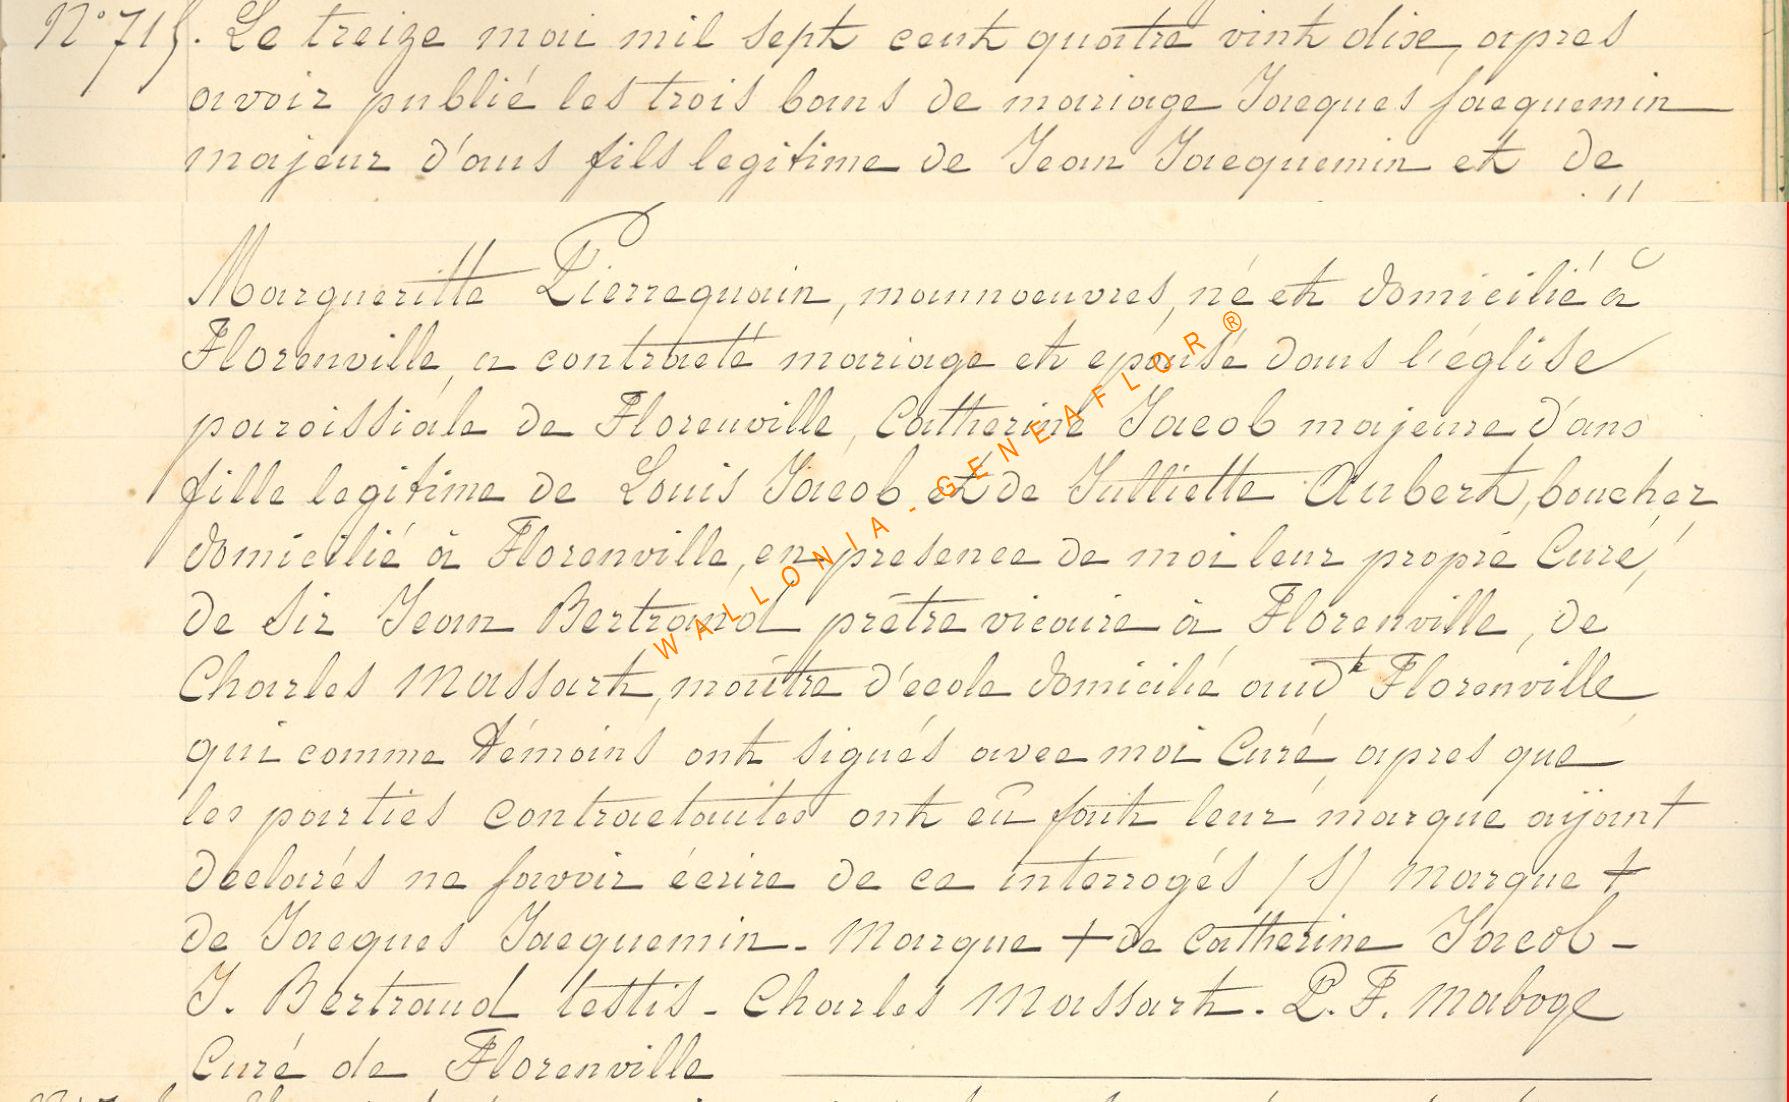 N° 715. Le treize mai mil sept cent quatre vint dix, apres
avoir publié les trois bans de mariage Jacques Jacquemin
majeur d'ans fils legitime de Jean Jacquemin et de
Margueritte Pierrequain, mannoeuvres, né et domicilié à
Florenville, a contracté mariage et épousé dans l'église
paroissiale de Florenville, Catherine Jacob majeure d'ans
fille legitime de Louis Jacob et de Julliette Aubert, boucher
domicilié à Florenville, en presence de moi leur propre Curé,
de Sir Jean Bertrand prêtre vicaire à Florenville, de
Charles Massart, maître d'ecole domicilié audt Florenville
qui comme témoins ont signés avec moi Curé, apres que
les parties contractantes ont eû fait leur marque aÿant
declarés ne savoir écrire de ce interrogés /S/ Marque +
de Jacques Jacquemin - Marque + de Catherine Jacob -
J. Bertrand testis - Charles Massart. P. F. Maboge
Curé de Florenville
WALLONIA - GENEAFLOR ®